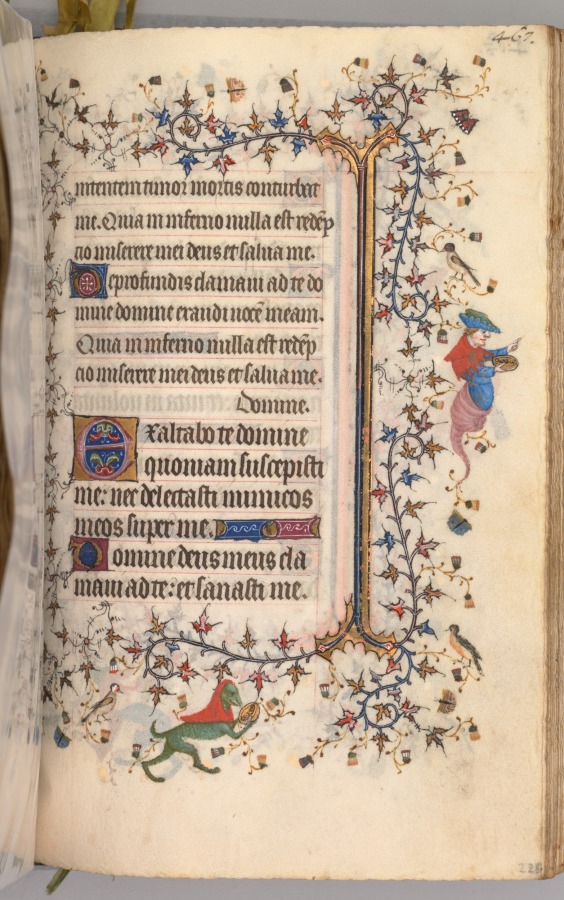 467.
nitentem timor mortis conturbat
me. Quia in inferno nulla est redēp
cio miserere mei deus et salua me.
De profundis clamaui ad te do
mine domine exaudi uocē meam.
Quia in inferno nulla est redēp
cio miserere mei deus et salua me.
Domine.
Exaltabo te domine
quoniam suscepisti
me: nec delectasti inimicos
meos super me.
Domine deus meus cla
maui ad te: et sanasti me.